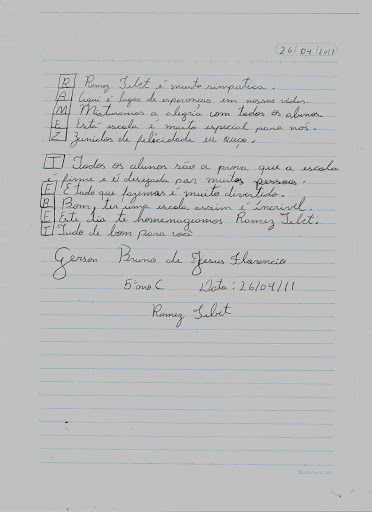 26/04/2011
R Ramez Tebet é muito simpatica.
A Aqui é lugar de esperanças em nossas vidas.
M Misturamos a alegria com todos os alunos.
E Está escola é muito especial para nós.
Z Zunidos de felicidade eu ouço.
T Todos os alunos são a prova que a escola
é firme e é desejada por muitas pessoas.
E E tudo que fazemos é muito divertido.
B Bom, ter uma escola assim é incrivel.
E Este dia te homenageamos Ramez Tebet.
T Tudo de bom para você
Gerson Bruno de Jesus Florencio
5º ano C Data: 26/04/11
Ramez Tebet